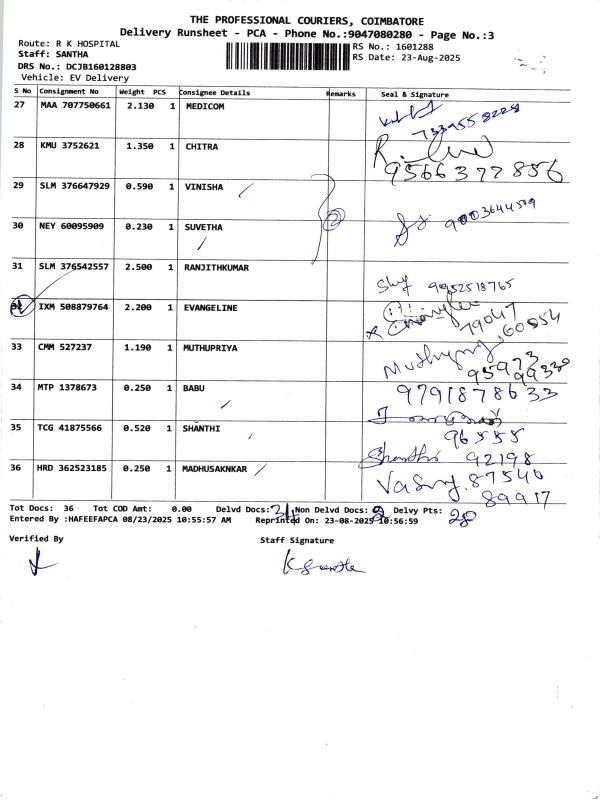 THE PROFESSIONAL COURIERS, COIMBATORE
Delivery Runsheet - PCA - Phone No.:9047080280 - Page No.:3
Route: R K HOSPITAL
RS No.: 1601288
Staff: SANTHA
RS Date: 23-Aug-2025
DRS No.: DCJB160128803
Vehicle: EV Delivery
S No Consignment No Weight PCS Consignee Details Remarks Seal & Signature
27 MAA 707750661 2.130 1 MEDICOM
7339558228
28 KMU 3752621 1.350 1 CHITRA
9566377856
29 SLM 376647929 0.590 1 VINISHA
30 NEY 60095909 0.230 1 SUVETHA
9003644509
31 SLM 376542557 2.500 1 RANJITHKUMAR
9952518765
32 IXM 508879764 2.200 1 EVANGELINE
79047
60554
33 CMM 527237 1.190 1 MUTHUPRIYA
95973
99330
34 MTP 1378673 0.250 1 BABU
9791878633
35 TCG 41875566 0.520 1 SHANTHI
96555
Shanthi 92198
36 HRD 362523185 0.250 1 MADHUSAKNKAR
87540
89917
Tot Docs: 36 Tot COD Amt: 0.00 Delvd Docs: 34 Non Delvd Docs: 2 Delvy Pts: 28
Entered By :HAFEEFAPCA 08/23/2025 10:55:57 AM Reprinted On: 23-08-2025 10:56:59
Verified By Staff Signature